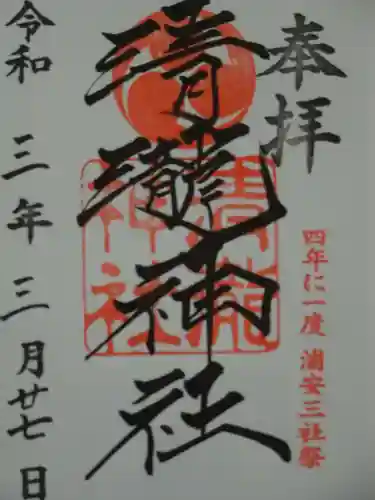 奉拝
四年に一度 浦安三社祭
清瀧神社
清瀧
神社
令和 三年 三月廿七日